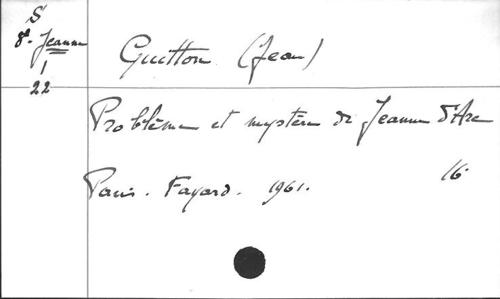 S
8º- Jeanne
1
22
Guitton (Jean)
Problème et mystère de Jeanne d'Arc
Paris. Fayard. 1961. 16º